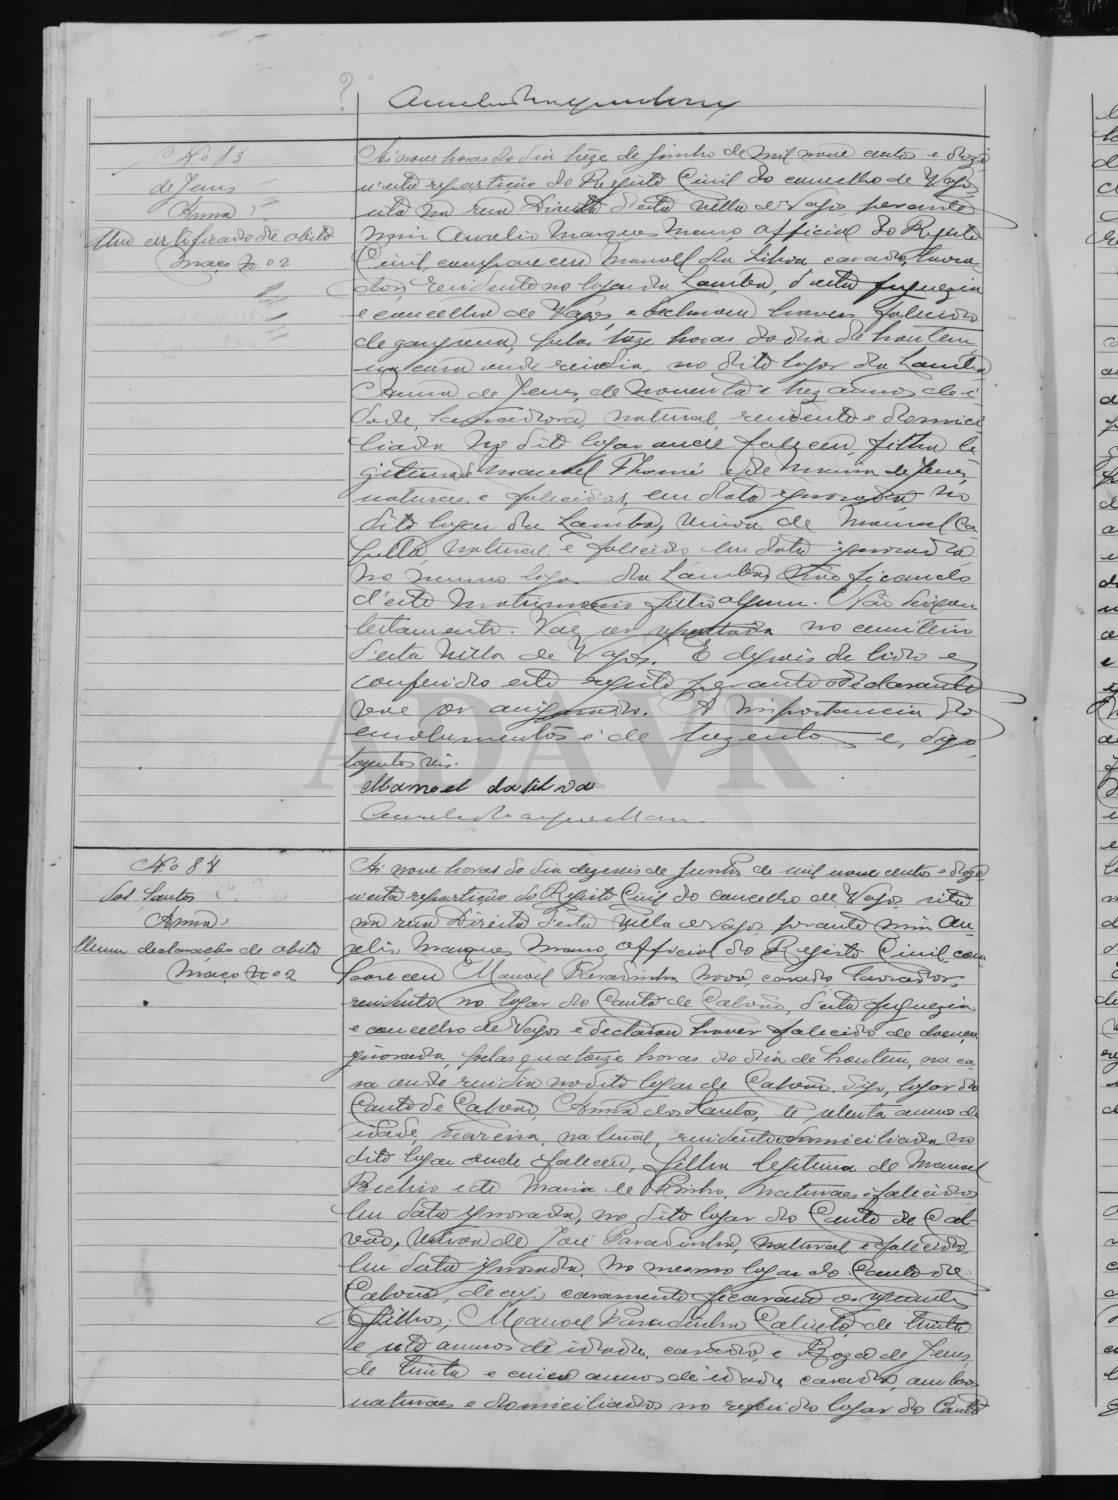 Aurelio Marques Mano
No 83
de Jesus
Anna
Um certificado de obito
maço No 2
Às nove horas do dia treze de Junho de mil nove centos e doze
n'esta repartição do Registo Civil do concelho de Vagos
sita na rua Direita d'esta villa de Vagos, perante
mim Aurelio Marques Mano, official do Registo
Civil, compareceu Manoel da Silva, casado, lavra-
dor, residente no logar da Lomba, d'esta freguezia
e concelho de Vagos, e declarou haver fallecido
de gangrena, pelas treze horas do dia de hontem,
na casa onde residia, no dito logar da Lomba,
Anna de Jesus, de noventa e trez annos de i-
dade, lavradora, natural, residente e domici-
liada no dito logar onde falleceu, filha le-
gitima de Manoel Thomé e de Maria de Jesus,
naturaes e fallecidos, em data ignorada, no
dito logar da Lomba, viuva de Manoel Ca-
pella, natural e fallecido em data ignorada
no mesmo logar da Lomba, não ficando
d'este matrimonio filho algum. Não deixou
testamento. Vae ser sepultada no cemiterio
d'esta villa de Vagos. E depois de lido e
conferido este registo perante o declarante
vae ser assignado. A importancia dos
emolumentos é de trezentos e, digo,
trezentos reis.
Manoel da Silva
Aurelio Marques Mano
ADAVR
No 84
dos Santos
Anna
Uma declaração de obito
Maço No 2
Às nove horas do dia dezeseis de Junho de mil nove centos e doze
n'esta repartição do Registo Civil do concelho de Vagos sita
na rua Direita d'esta villa de Vagos perante mim Au-
relio Marques Mano, official do Registo Civil, com-
pareceu Manoel Paradinha Novo, casado, lavrador,
residente no logar do Canto de Calvão, d'esta freguezia
e concelho de Vagos e declarou haver fallecido de doença
ignorada, pelas quatorze horas do dia de hontem, na ca-
sa onde residia no dito logar de Calvão, digo, logar do
Canto de Calvão, Anna dos Santos, de setenta annos de
idade, seareira, natural, residente e domiciliada no
dito logar onde falleceu, filha legitima de Manoel
e de Maria de Pinho, naturaes e fallecidos
em data ignorada, no dito logar do Canto de Cal-
vão, viuva de José Paradinha, natural e fallecido
em data ignorada, no mesmo logar do Canto de
Calvão, de cujo casamento ficaram os seguintes
filhos; Manoel Paradinha Calisto, de trinta
e sete annos de idade, casado, e Roza de Jesus,
de trinta e cinco annos de idade, casada, ambos
naturaes e domiciliados no referido logar do Canto